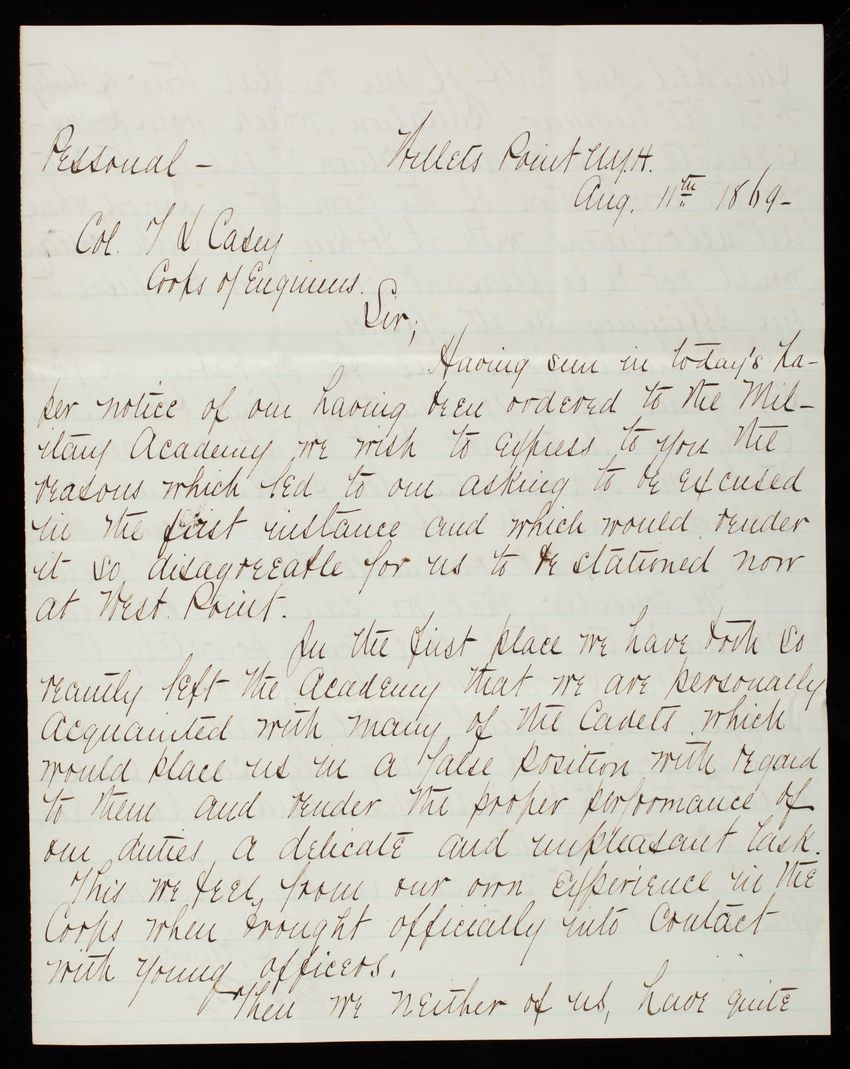 Personal -
Willets Point N.Y.H.
Aug. 11th 1869-
Col. T L Casey
Corps of Engineers.
Sir;
Having seen in today's pa-
per notice of our having been ordered to the Mil-
itary Academy we wish to express to you the
reasons which led to our asking to be excused
in the first instance and which would render
it so disagreeable for us to be stationed now
at West Point.
In the first place we have both so
recently left the Academy that we are personally
acquainted with many of the Cadets which
would place us in a false position with regard
to them and render the proper performance of
our duties a delicate and unpleasant task.
This we feel from our own experience in the
Corps when brought officially into contact
with young officers.
Then we neither of us, have quite